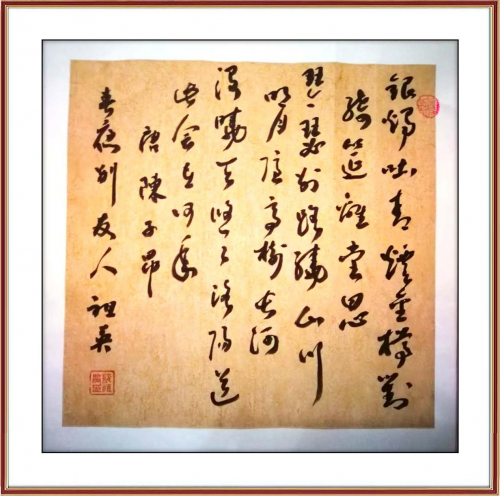 銀燭吐青煙金樽對
綺筵離堂思
琴瑟別路繞山川
明月隱高樹長河
沒曉天悠々洛陽道
此會在何年
唐陳子昂
春夜別友人 祖英